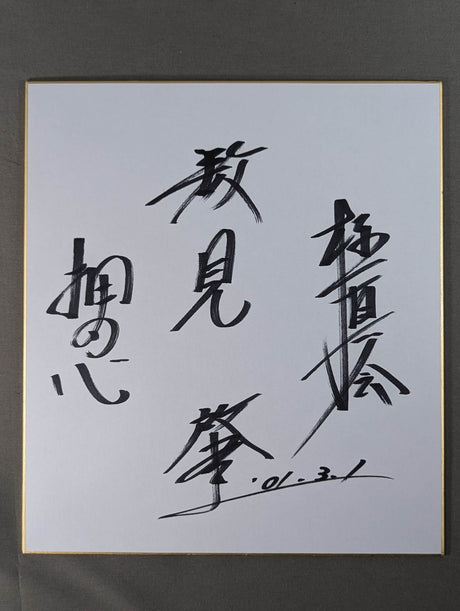 極真会
数見 肇
'01.3.1
押の心